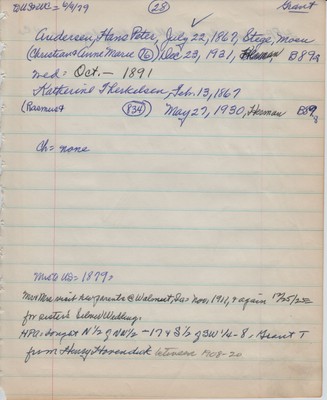 (28) Grant
Andersen, Hans Peter, July 22, 1867, Stege, Moen
(Christian & Anne Marie (76) Dec 23, 1931, Herman B89
wed: Oct. – 1891
Katherine Therkelsen, Feb. 13, 1867
(Rasmus & (834) May 27, 1930, Herman B89
Ch = none
to US = 1879 =
Mr & Mrs visit her parents @ Walnut, Ia = Nov. 1911, & again 12/25/20
for sister's Wedding.
HPA = bought N½ of NW¼ – 17 & S½ of SW¼ – 8, Grant T
from Henry between 1908-20